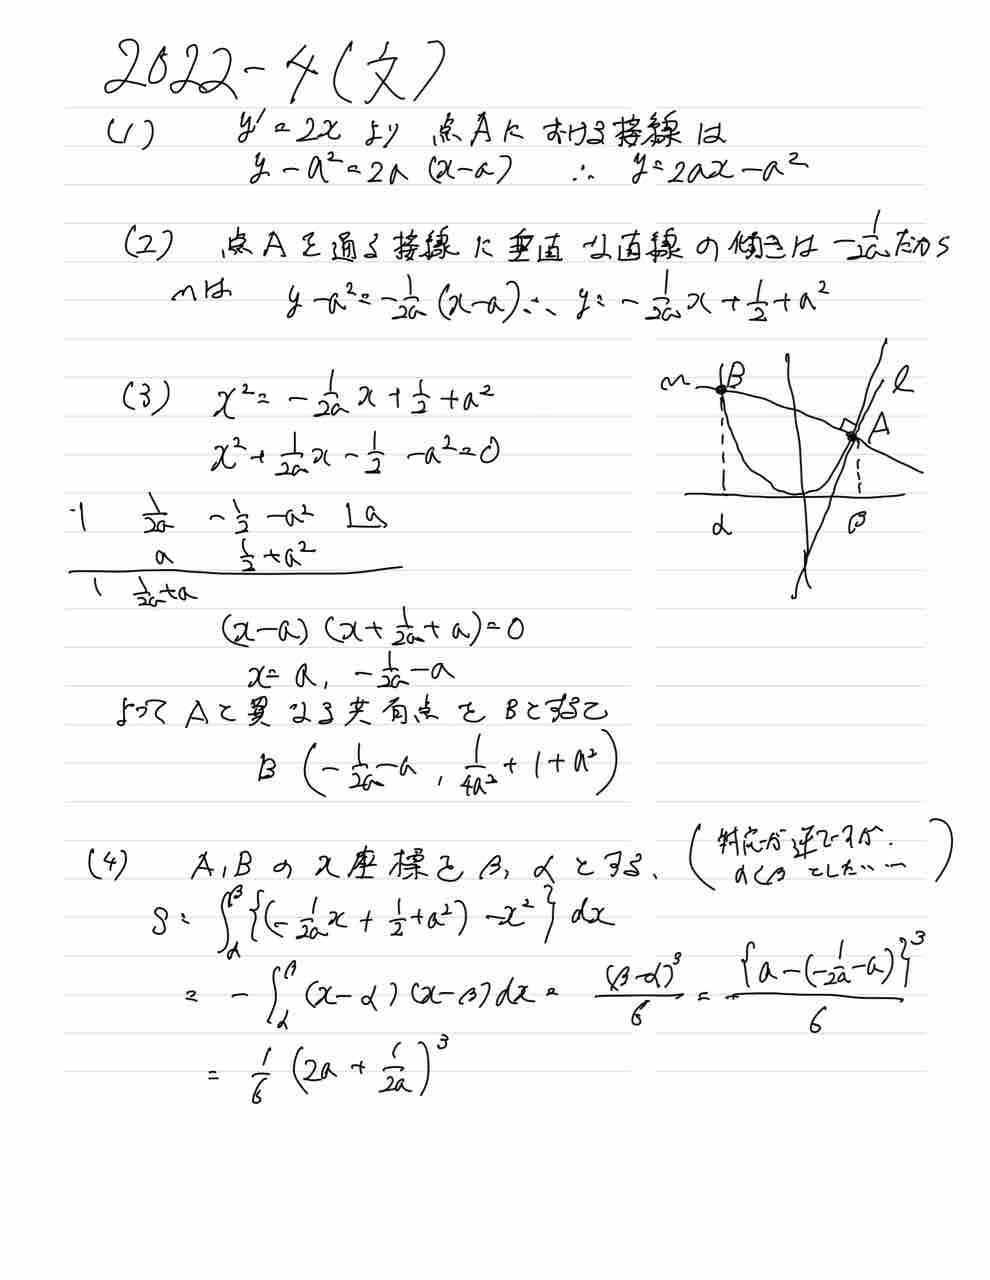 2022-4(文)
(1) y'=2x より 点Aにおける接線は
y-a²=2a(x-a) ∴ y=2ax-a²
(2) 点Aを通る接線に垂直な直線の傾きは -1/2a だから
mは y-a²=-1/2a(x-a) ∴ y=-1/2a x+1/2+a²
(3) x²=-1/2a x+1/2+a²
x²+1/2a x-1/2-a²=0
1 1/2a -1/2-a² |a
a 1/2+a²
1 1/2a+a
(x-a)(x+1/2a+a)=0
x=a, -1/2a-a
よって Aと異なる共有点をBとすると
B(-1/2a-a, 1/4a²+1+a²)
m B l A
α β
(4) A,Bのx座標をβ,αとする、(対応が逆ですが、α<βとしたい…)
S=∫_α^β{(-1/2a x+1/2+a²)-x²}dx
=-∫_α^β(x-α)(x-β)dx=(β-α)³/6={a-(-1/2a-a)}³/6
=1/6(2a+1/2a)³